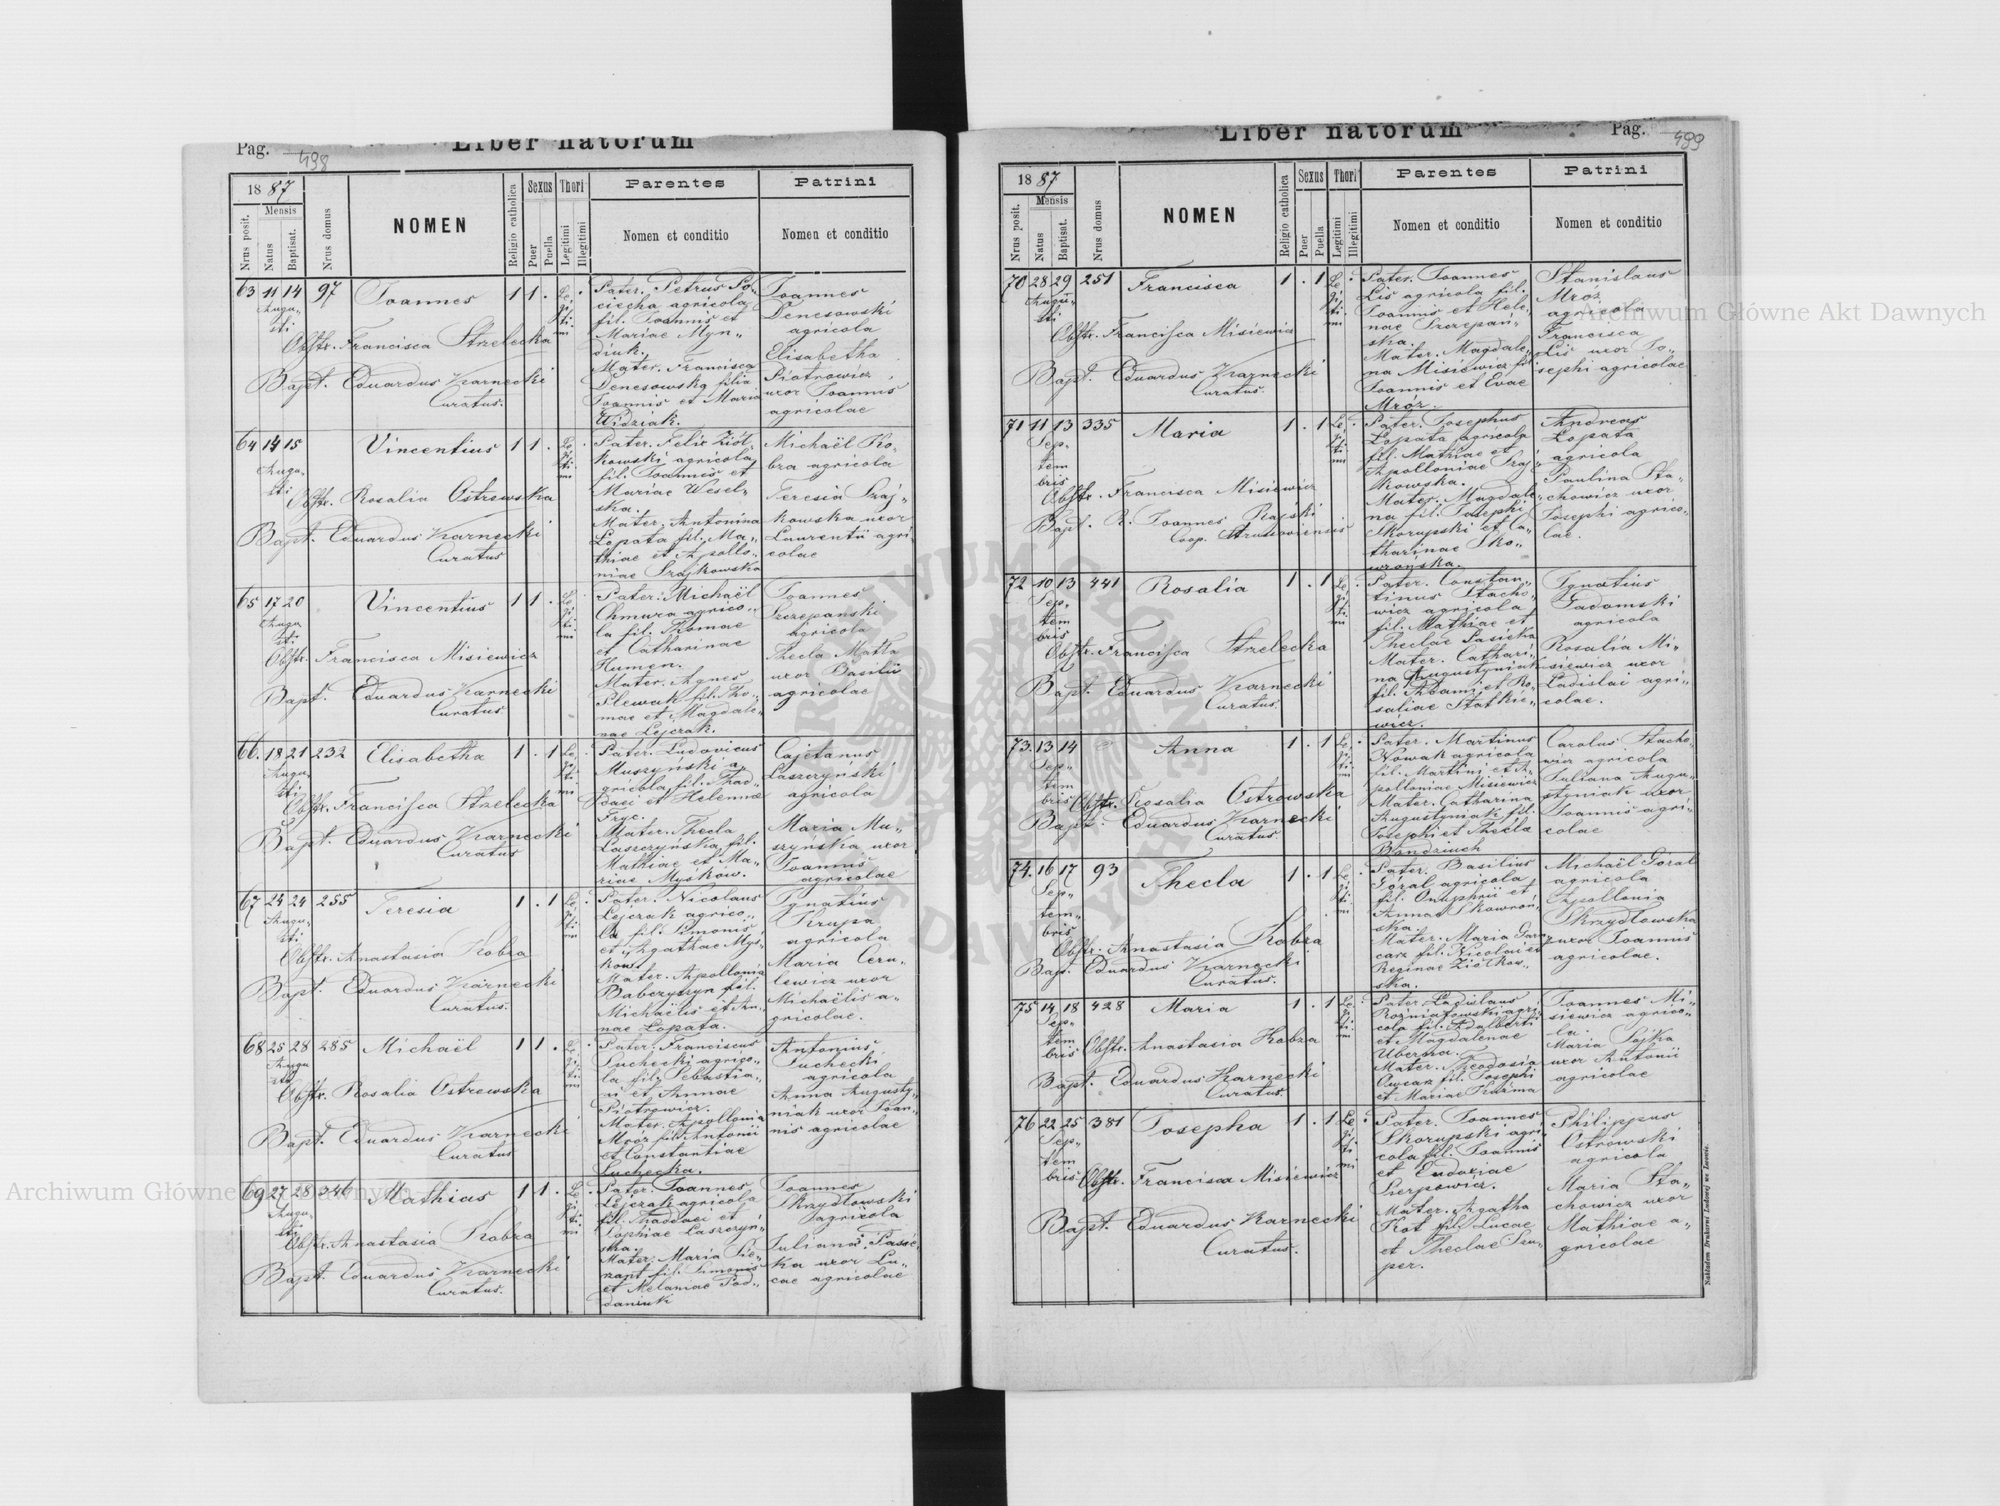 Pag. 498
Liber natorum
1887
Nrus posit.
Mensis
Natus
Baptisat.
Nrus domus
NOMEN
Religio catholica
Sexus
Puer
Puella
Thori
Legitimi
Illegitimi
Parentes
Nomen et conditio
Patrini
Nomen et conditio
63 11 14 97 Joannes 1 1 .
Augu-
sti
Obstr. Francisca Strzelecka
Bapt. Eduardus Karnecki
Curatus.
Le-
gi-
ti-
mi
Pater. Petrus Po-
ciecha agricola
fil. Joannis et
Mariae Myn-
diuk.
Mater. Francisca
Denesowska filia
Joannis et Maria
Widziak.
Joannes
Denesowski
agricola
Elisabetha
Piotrowicz
uxor Joannis
agricolae
64 14 15 Vincentius 1 1 .
Augu-
sti
Obstr. Rosalia Ostrowska
Bapt. Eduardus Karnecki
Curatus
Pater. Felix Ziół-
kowski agricola
fil. Joannis et
Mariae Wesel-
ska.
Mater. Antonina
Łopata fil. Ma-
thiae et Apollo-
niae Szajkowska
Michaël Ko-
bra agricola
Teresia Szaj-
kowska uxor
Laurentii agri-
colae
65 17 20 Vincentius 1 1 .
Augu-
sti
Obstr. Francisca Misiewicz
Bapt. Eduardus Karnecki
Curatus
Pater. Michaël
Chmura agrico-
la fil. Thomae
et Catharinae
Humen.
Mater. Agnes
Plewak fil. Tho-
mae et Magdale-
nae Lejczak.
Joannes
Szczepanski
agricola
Thecla Matła
uxor Basilii
agricolae
66. 18 21 232 Elisabetha 1 . 1
Augu-
sti
Obstr. Francisca Strzelecka
Bapt. Eduardus Karnecki
Curatus
Pater. Ludovicus
Muszyński a-
gricola fil. Thad-
daei et Helennae
Fryc.
Mater. Thecla
Laszczyńska fil.
Mathiae et Ma-
riae Myśkow.
Cajetanus
Laszczyński
agricola
Maria Mu-
szyńska uxor
Joannis
agricolae
67 24 24 255 Teresia 1 . 1
Augu-
sti
Obstr. Anastasia Kobza
Bapt. Eduardus Karnecki
Curatus.
Pater. Nicolaus
Lejczak agrico-
la fil. Simonis
et Agathae Myś-
kow.
Mater. Apollonia
fil.
Michaëlis et An-
nae Łopata.
Ignatius
Krupa
agricola
Maria Ceru-
lewicz uxor
Michaëlis a-
gricolae.
68 25 28 285 Michaël 1 1 .
Augu
sti
Obstr. Rosalia Ostrowska
Bapt. Eduardus Karnecki
Curatus
Pater. Franciscus
Suchecki agrico-
la fil. Sebastia-
ni et Annae
Piotrowicz.
Mater. Apollonia
Mróz fil. Antonii
et Constantiae
Suchecka.
Antonius
Suchecki
agricola
Anna Augusty-
niak uxor Joan-
nis agricolae
69 27 28 346 Mathias 1 1 .
Augu-
sti
Obstr. Anastasia Kobza
Bapt. Eduardus Karnecki
Curatus.
Pater. Joannes
Lejczak agricola
fil. Thaddaei et
Sophiae Laszczyń-
ska.
Mater. Maria
fil. Simonis
et Melaniae Pod-
daniuk
Joannes
Skrzydłowski
agricola
Juliana Pasic-
ka uxor Lu-
cae agricolae
Liber natorum
Pag. 499
1887
Nrus posit.
Mensis
Natus
Baptisat.
Nrus domus
NOMEN
Religio catholica
Sexus
Puer
Puella
Thori
Legitimi
Illegitimi
Parentes
Nomen et conditio
Patrini
Nomen et conditio
70 28 29 251 Francisca 1 . 1
Augu-
sti
Obstr. Francisca Misiewicz
Bapt. Eduardus Karnecki
Curatus.
Pater. Joannes
Lis agricola fil.
Joannis et Hele-
nae Szczepań-
ska.
Mater. Magdale-
na Misiewicz fil.
Joannis et Evae
Mróz.
Stanislaus
Mróz
agricola
Francisca
Lis uxor Jo-
sephi agricolae
71 11 13 335 Maria 1 . 1
Sep-
tem
bris
Obstr. Francisca Misiewicz
Bapt. R. Joannes Rajski
Coop. Strusoviensis
Pater. Josephus
Łopata agricola
fil. Mathiae et
Apolloniae Szaj-
kowska.
Mater. Magdale-
na fil. Josephi
Skorupski et Ca-
tharinae Sko-
wrońska.
Andreas
Łopata
agricola
Paulina Sta-
chowicz uxor
Josephi agrico-
lae.
72 10 13 441 Rosalia 1 . 1
Sep-
tem
bris
Obstr. Francisca Strzelecka
Bapt. Eduardus Karnecki
Curatus.
Pater. Constan-
tinus Stacho-
wicz agricola
fil. Mathiae et
Theclae Pasicka
Mater. Cathari-
na Augustyniak
fil. Adami et Ro-
saliae Statkie-
wicz.
Ignatius
Sadomski
agricola
Rosalia Mi-
siewicz uxor
Ladislai agri-
colae.
73. 13 14 Anna 1 . 1
Sep-
tem
bris
Obstr. Rosalia Ostrowska
Bapt. Eduardus Karnecki
Curatus.
Pater. Martinus
Nowak agricola
fil. Martini et A-
polloniae Misiewicz
Mater. Catharina
Augustyniak fil.
Josephi et Thecla
Bandziuch
Carolus Stacho-
wicz agricola
Juliana Augu-
styniak uxor
Joannis agri-
colae
74. 16 17 93 Thecla 1 . 1
Sep-
tem-
bris
Obstr. Anastasia Kobza
Bapt. Eduardus Karnecki
Curatus.
Pater. Basilius
Góral agricola
fil. Onuphrii et
Annae Skowroń-
ska
Mater. Maria Garn-
carz fil. Nicolai et
Reginae Ziółkow-
ska.
Michaël Góral
agricola
Apollonia
Skrzydłowska
uxor Joannis
agricolae.
75 14 18 428 Maria 1 . 1
Sep-
tem
bris
Obstr. Anastasia Kobza
Bapt. Eduardus Karnecki
Curatus.
Pater. Ladislaus
Rozniatowski agri-
cola fil. Adalberti
et Magdalenae
Uberna.
Mater. Theodosia
Owcar fil. Josephi
et Mariae Kuźma
Joannes Mi-
siewicz agrico-
la.
Maria Sojka
uxor Antonii
agricolae
76 22 25 381 Josepha 1 . 1
Sep-
tem
bris
Obstr. Francisca Misiewicz
Bapt. Eduardus Karnecki
Curatus.
Pater. Joannes
Skorupski agri-
cola fil. Joannis
et Eudoxiae
Sierpowicz.
Mater. Agatha
Kot fil. Lucae
et Theclae Szu-
per.
Philippus
Ostrowski
agricola
Maria Sta-
chowicz uxor
Mathiae a-
gricolae
Nakładem Drukarni Ludowej we Lwowie.
Archiwum Główne Akt Dawnych
Archiwum Główne Akt Dawnych
ARCHIWUM GŁÓWNE AKT DAWNYCH